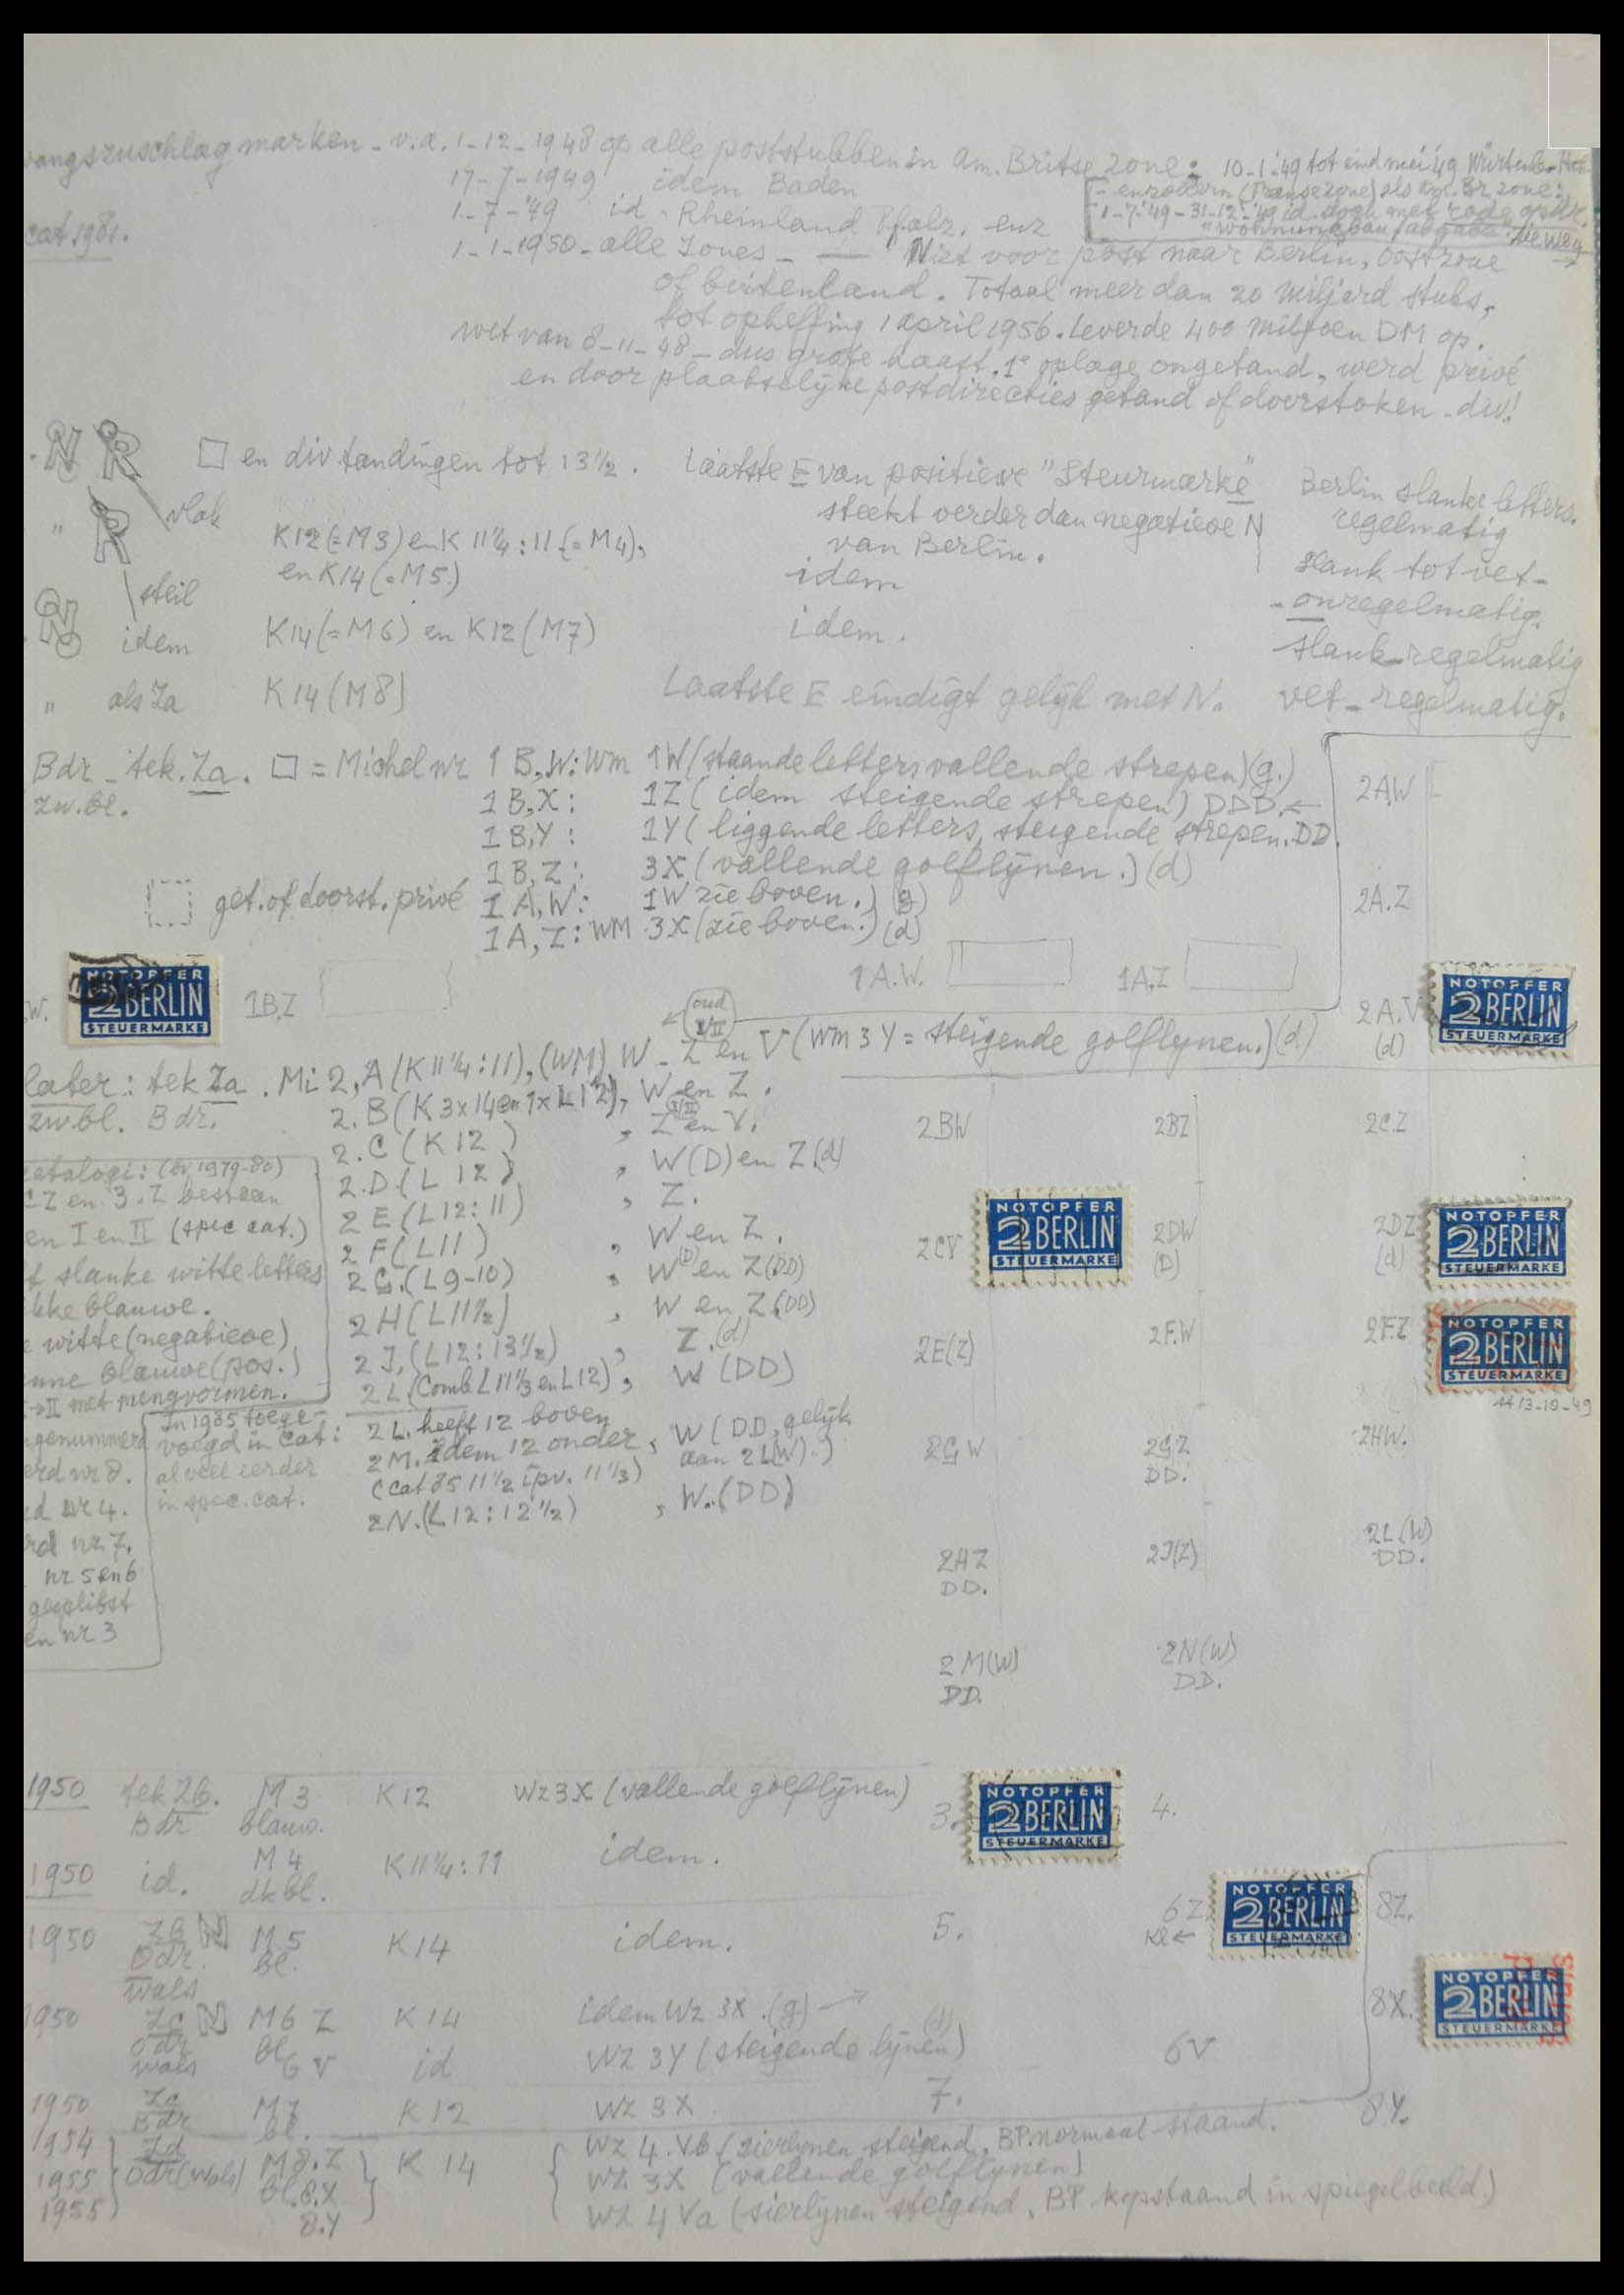 wangszuschlagmarken - v.a. 1-12-1948 op alle poststukken in Am. Britse Zone:
10-1-'49 tot eind mei '49
17-7-1949 idem Baden
enzollern (Franse zone) als Am. Br zone:
1-7-'49 id. Rheinland Pfalz. enz
1-7-'49 - 31-12-'49 id. doch met rode opdr.
"wohnungbau / abgabe"
cat 1981.
1-1-1950 - alle Zones - Niet voor post naar Berlin, Oostzone
of buitenland. Totaal meer dan 20 miljard stuks,
tot opheffing 1 april 1956. Leverde 400 miljoen DM op.
wet van 8-11-48 - dus grote haast. 1e oplage ongetand, werd privé
en door plaatselijke postdirecties getand of doorstoken - div!
N R
□ en div tandingen tot 13½.
Laatste E van positieve "Steurmarke"
steekt verder dan negatieve N
van Berlin.
Berlin slanke letters.
regelmatig
" R vlak
K12 (=M3) en K 11¼:11 (=M4),
en K14 (=M5)
idem
slank tot vet -
- onregelmatig.
N steil
idem
K14 (=M6) en K12 (M7)
idem.
slank - regelmatig
" als Za
K14 (M8)
Laatste E eindigt gelijk met N.
vet - regelmatig.
Bdr - tek. Za. □ = Michel nr 1 B,W: Wm 1W (staande letters vallende strepen) (g.)
zw.bl.
1 B,X: 1Z (idem steigende strepen) DDD. ←
1 B,Y: 1Y (liggende letters, steigende strepen. DD.
1 B,Z: 3X (vallende golflijnen.) (d)
get. of doorst. privé
1 A,W: 1W zie boven.) (g)
1A, Z: WM 3X (zie boven.) (d)
2A.W
2A.Z
1A.W.
1A,Z
W.
NOTOPFER
2 BERLIN
STEUERMARKE
1B,Z
2A.V
(d)
NOTOPFER
2 BERLIN
STEUERMARKE
oud
I/II
later: tek Za. Mi 2, A (K 11¼:11), (WM) W - Z en V (Wm 3 Y = steigende golflijnen.) (d)
zwbl. Bdr.
2. B (K 3x14 en 1x L12), W en Z.
2. C (K 12), Z en V.
2. D (L 12), W (D) en Z (d)
2 E (L12:11), Z.
2 F (L11), W en Z.
2 G. (L 9-10), W (D) en Z (DD)
2 H (L11½), W en Z (DD)
2 J, (L12:13½), Z. (d)
2 L (Comb. L 11⅓ en L12), W (DD)
2 L. heeft 12 boven
2 M. idem 12 onder, W (DD, gelijk
aan 2L(W).)
(cat 85 11½ ipv. 11⅓)
2 N. (L12:12½), W. (DD)
catalogi: (bv 1979-80)
Z en 3.Z bestaan
en I en II (spec cat.)
slanke witte letters
blauwe.
witte (negatieve)
blauwe (pos.)
→ II met mengvormen.
genummerd
nr 8.
nr 4.
nr 7.
nr 5 en 6
gesplitst
en nr 3
In 1985 toege-
voegd in Cat:
al veel eerder
in spec. cat.
2BW
2BZ
2C.Z
2CV
NOTOPFER
2 BERLIN
STEUERMARKE
2DW
(D)
2DZ
(d)
NOTOPFER
2 BERLIN
STEUERMARKE
2E(Z)
2F.W
2F.Z
NOTOPFER
2 BERLIN
STEUERMARKE
13-10-49
2G W
2G.Z
DD.
2HW.
2HZ
DD.
2J(Z)
2L(W)
DD.
2M(W)
DD.
2N(W)
DD.
1950 tek 26. M 3 K12 Wz 3X (vallende golflijnen)
Bdr blauw.
3.
NOTOPFER
2 BERLIN
STEUERMARKE
4.
1950 id. M 4 K11¼:11 idem.
dkbl.
1950 Zb N M.5 K14 idem.
Odr. bl.
wals
5.
6Z
NOTOPFER
2 BERLIN
STEUERMARKE
8Z.
1950 Zc N M6 Z K14 idem Wz 3X. (g) →
odr bl.
wals 6 V id Wz 3Y (steigende lijnen) (d)
6V
8X.
NOTOPFER
2 BERLIN
STEUERMARKE
1950 Zc M7 K12 Wz 3X
Bdr bl.
7.
8Y.
1954 Zd M8.Z K 14 Wz 4.Yb (sierlijnen steigend, BP. normaal staand.
1955 Odr (Wals) Bl. 8.X Wz 3X (vallende golflijnen)
1955 8.Y Wz 4 Ya (sierlijnen steigend, BP kopstaand in spiegelbeeld.)